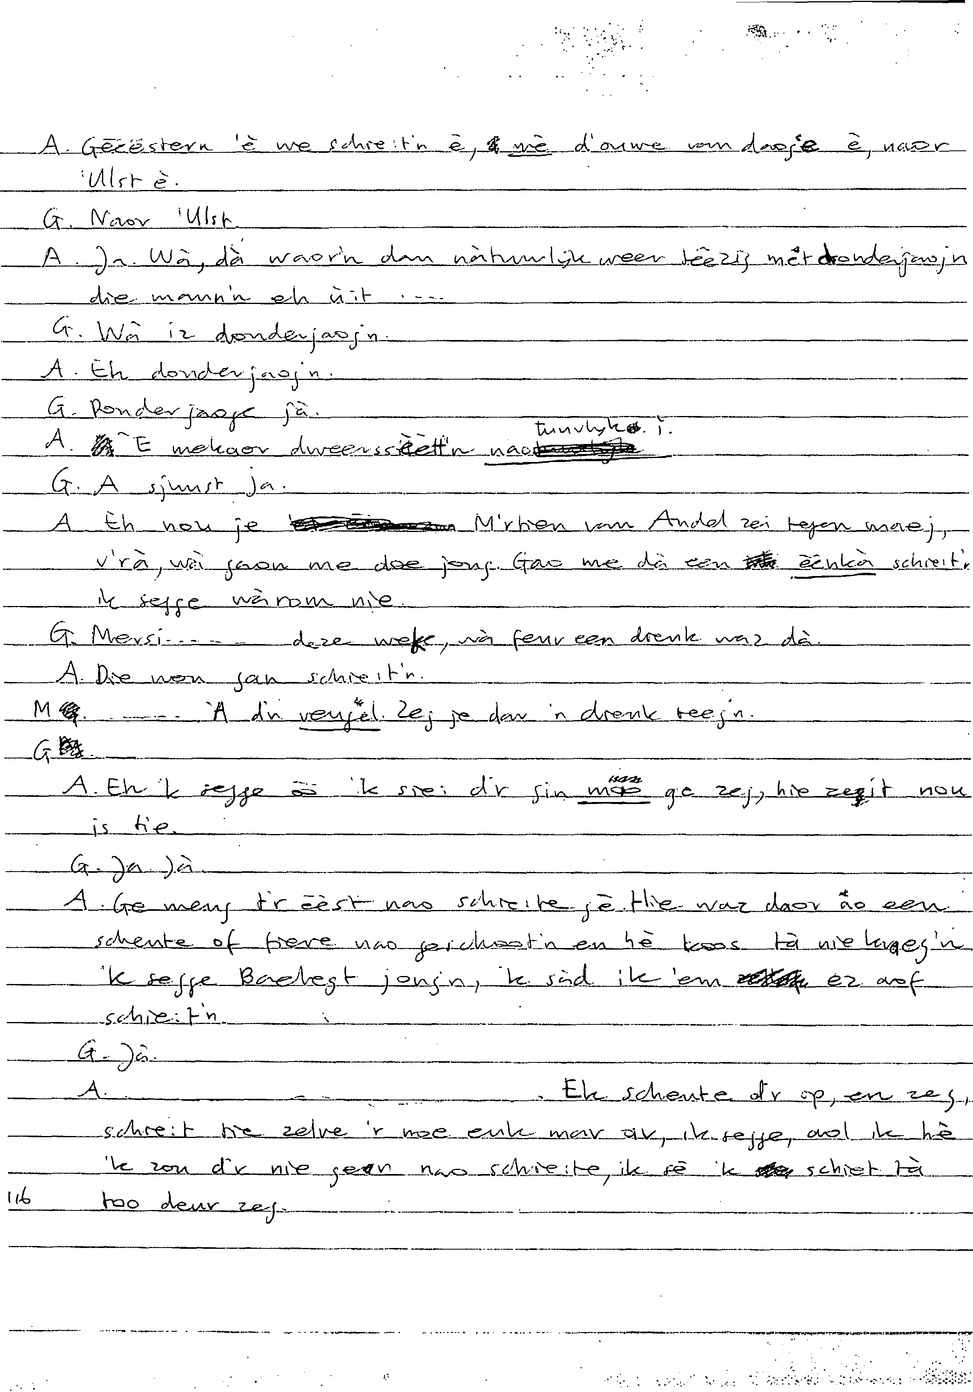 A. Gēēēstern 'è we schreit'n è, mè d'ouwe van daoje è, naor
'Ulst è.
G. Naor 'Ulst.
A. Ja. Wà, dà waor'n dan nàtuurlijk weer bēēzig mèt donderjaoj'n
die mann'n eh ùit ....
G. Wà iz donderjaoj'n.
A. Eh donderjaoj'n.
G. Donderjaoge jà.
A. 'E mekaor dweerssèètt'n nao tuurlyk. i.
G. A sjuust ja.
A Eh nou je M'rtien van Andel zei tegen maej,
v'rà, wài gaon me doe jong. Gao me dà een ēēnkà schreit'n
ik segge wàrom nie.
G. Mersi..... deze weke, wà feur een drenk waz dà.
A. Die won gan schreit'n.
M ....... 'A d'n veugel. Zej je dav 'n drenk teeg'n.
G
A. Eh 'k segge 'ik sei d'r gin mao ge zej, hie zegit nou
is tie.
G. Ja Jà
A. Ge meug t'r èèst nao schreite jè. Hie waz daor ào een
schente of fieve nao geschoot'n en hè koos tà nie kraeg'n
'k segge Baehegt jong'n, 'k sàd ik 'em ez aof
schreit'n.
G. Jà.
A. Ek schente d'r op, en zeg,
schreit tie zelve 'r noe enk mar av, ik segge, aol ik hè
'k zou d'r nie gean nao schreite, ik sè ik schiet tà
too deur zeg.
116